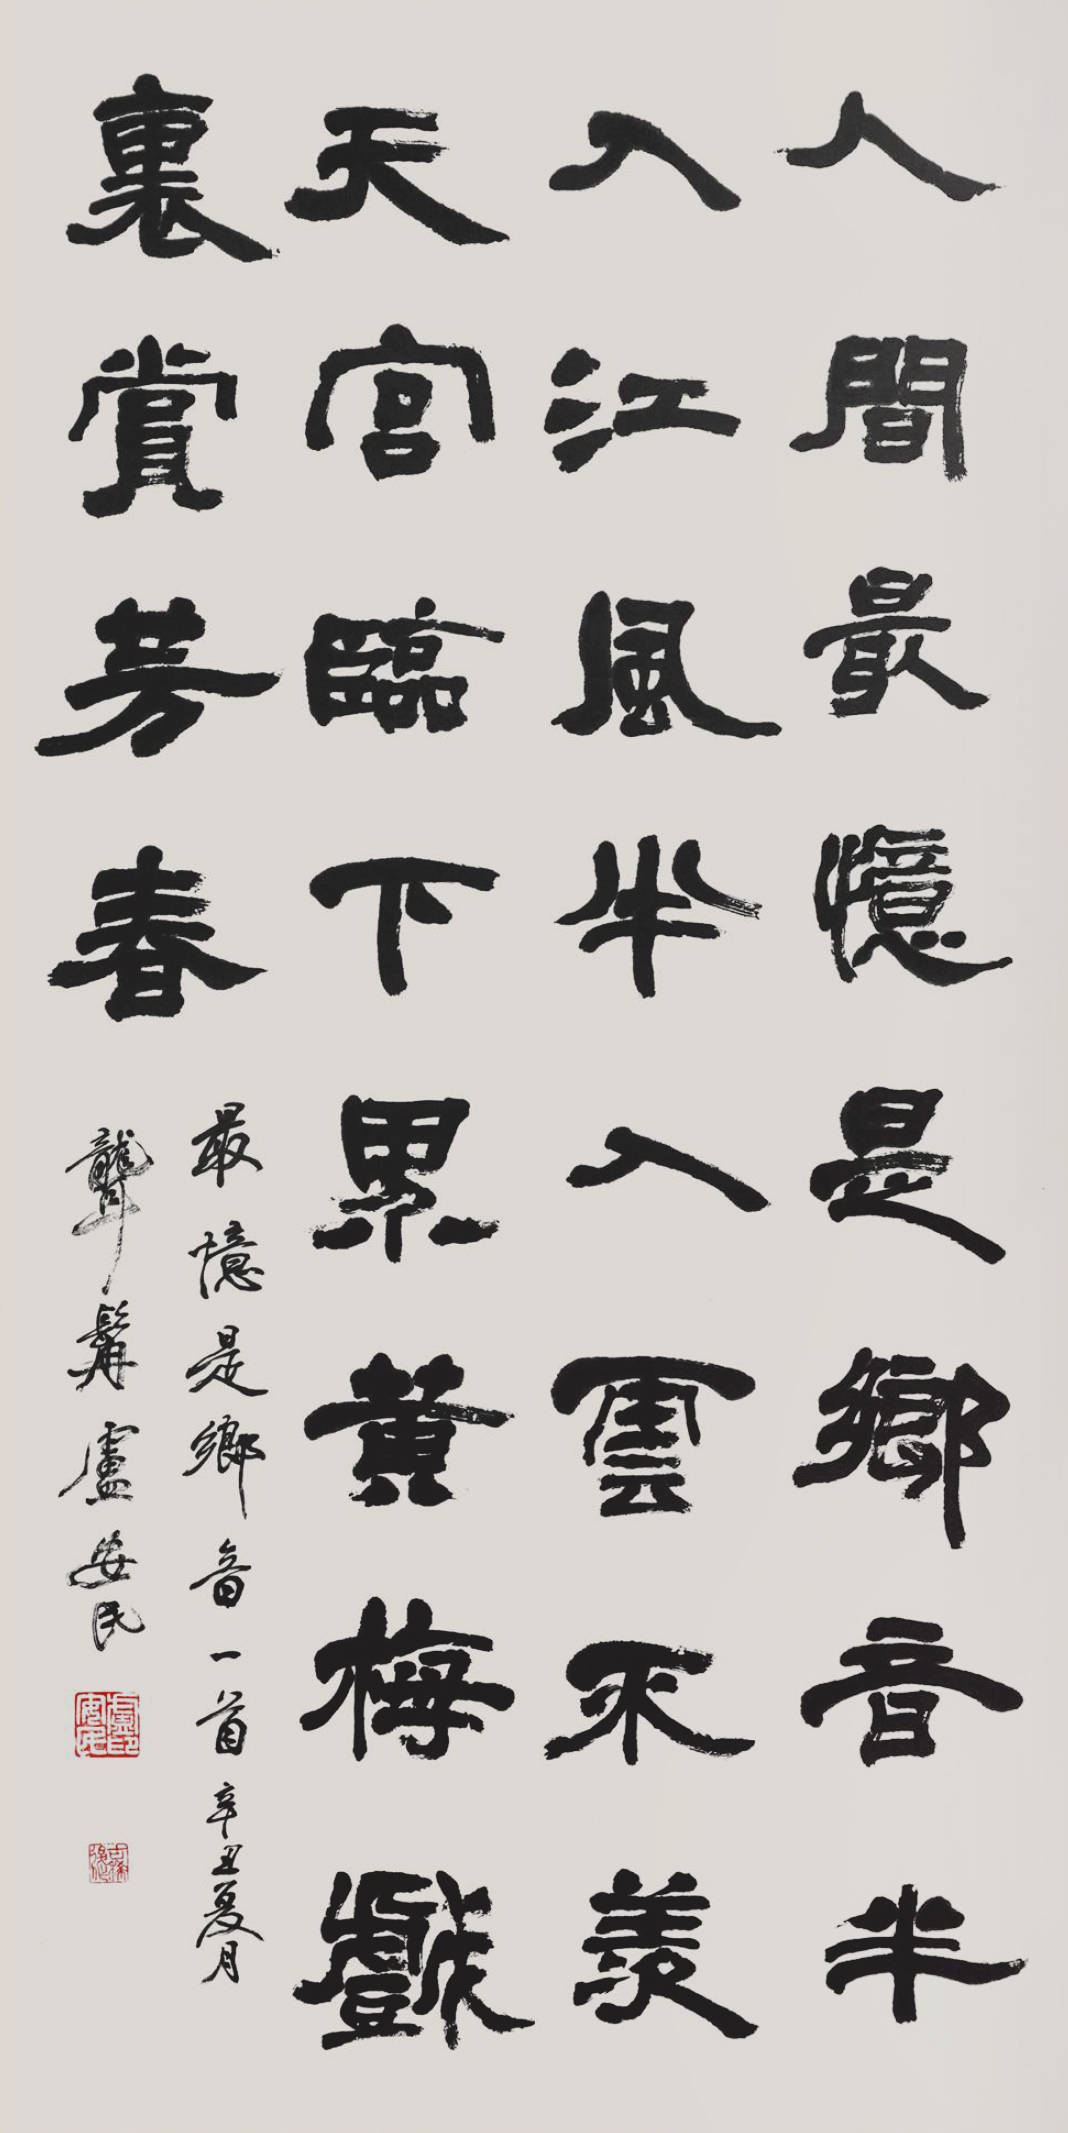 人間最憶是鄉音半
入江風半入雲不羨
天宮臨下界黃梅戲
裏賞芳春
最憶是鄉音一首辛丑夏月
聾髯盧安民
盧安民印